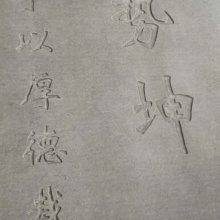 勢坤
以厚德載